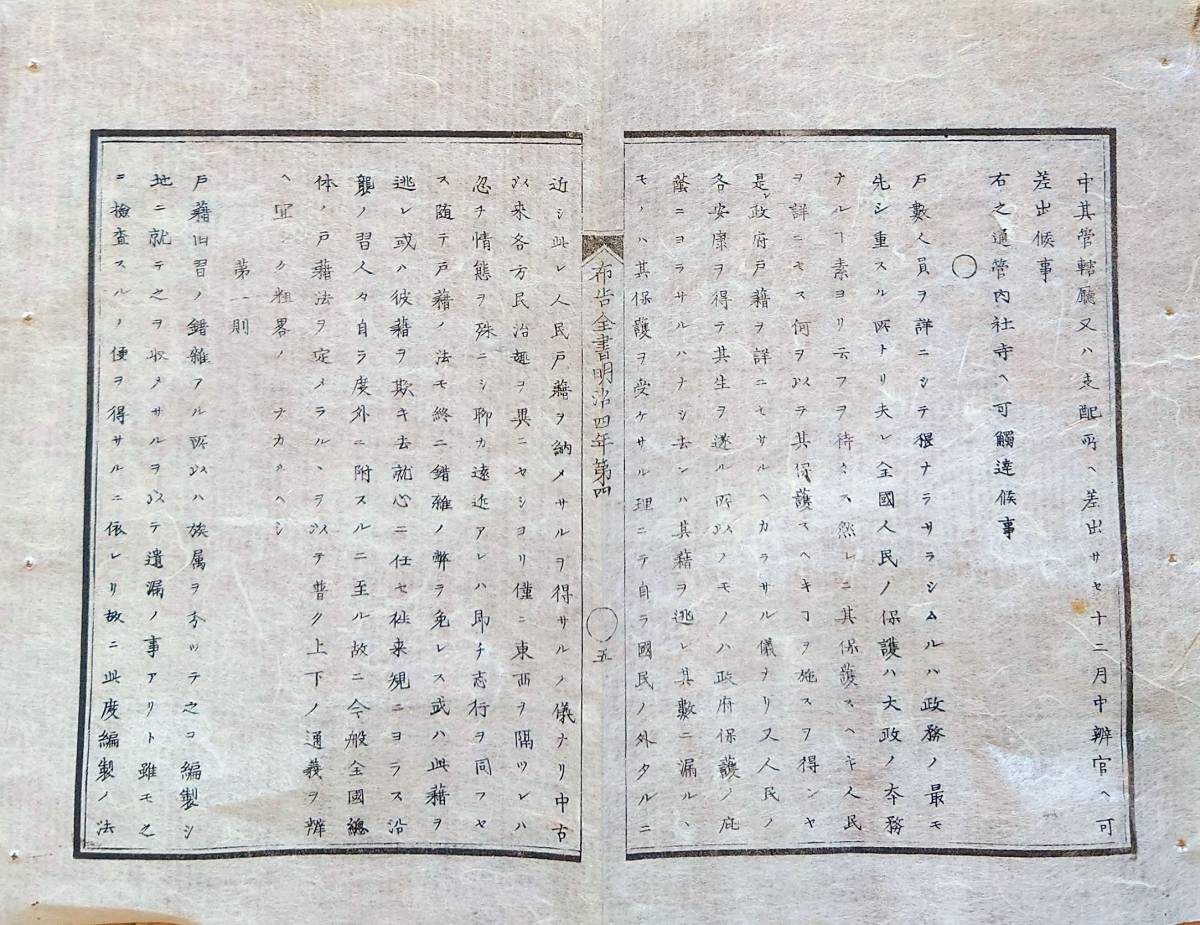 中其管轄廳又ハ支配所ヘ差出サセ十二月中辨官ヘ可
差出候事
右之通管内社寺ヘ可觸達候事
〇
戸數人員ヲ詳ニシテ猥ナラサラシムルハ政務ノ最モ
先シ重スル所トリ夫レ全國人民ノ保護ハ大政ノ本務
ナルヿ素ヨリ云フヲ待タス然レニ其保護スヘキ人民
ヲ詳ニセス何ヲ以ラ其保護スヘキヿヲ施スヲ得ンヤ
是レ政府戸藉ヲ詳ニセサルヘカラサル儀ヲリ又人民ノ
各安康ヲ得テ其生ヲ遂ル所以ノモノハ政府保護ノ庇
蔭ニヨラサルハナシ去ンハ其藉ヲ逃レ其數ニ漏ルヽ
モノハ其保護ヲ受ケサル理ニテ自ラ國民ノ外タルニ
布告全書明治四年第四
〇五
近シ此レ人民戸藉ヲ納メサルヲ得サルノ儀ナリ中古
以來各方民治趣ヲ異ニセシヨリ僅ニ東西ヲ隔ツレハ
忽チ情態ヲ殊ニシ聊カ遠近アレハ即チ志行ヲ同フセ
ス随テ戸藉ノ法モ終ニ錯雑ノ弊ヲ免レス或ハ此藉ヲ
逃レ或ハ彼藉ヲ欺キ去就心ニ任セ徃来規ニヨラス沿
襲ノ習人々自ラ度外ニ附スルニ至ル故ニ今般全國總
体ノ戸藉法ヲ定メラルヽヲ以テ普ク上下ノ通義ヲ辨
ヘ宜シク粗畧ノヿナカルヘシ
第一則
戸藉旧習ノ錯雑アル所以ハ族属ヲ分ッテ之ヲ編製シ
地ニ就テ之ヲ收メサルヲ以テ遺漏ノ事アリト雖モ之
ニ檢査スルノ便ヲ得サルニ依レリ故ニ此度編製ノ法